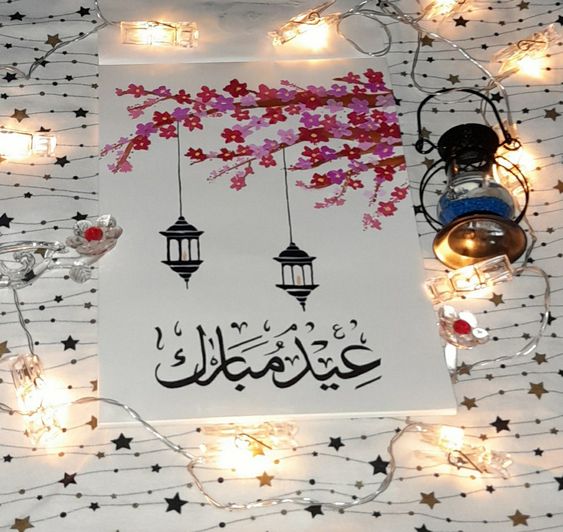 عِيْد مُبَارَك